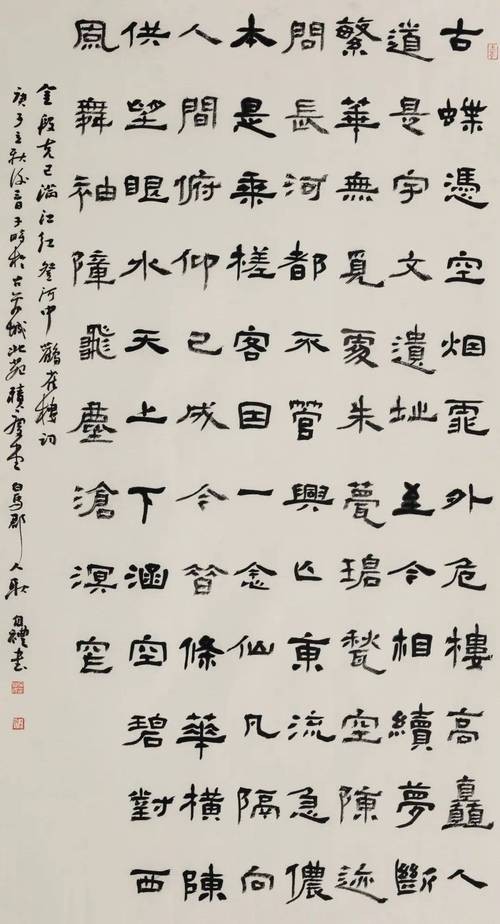 古堞憑空烟霏外危樓高矗人
道是宇文遺址至今相續夢斷
繁華無覓處朱甍碧甃空陳迹
問長河都不管興亡東流急儂
本是乘槎客因一念仙凡隔向
人間俯仰已成今昔條華橫陳
供望眼水天上下涵空碧對西
風舞袖障飛塵滄溟窄
金段克己滿江紅登河中鸛雀樓詞
庚子立秋後 子時於古 城北苑 白馬郡人耿自禮書